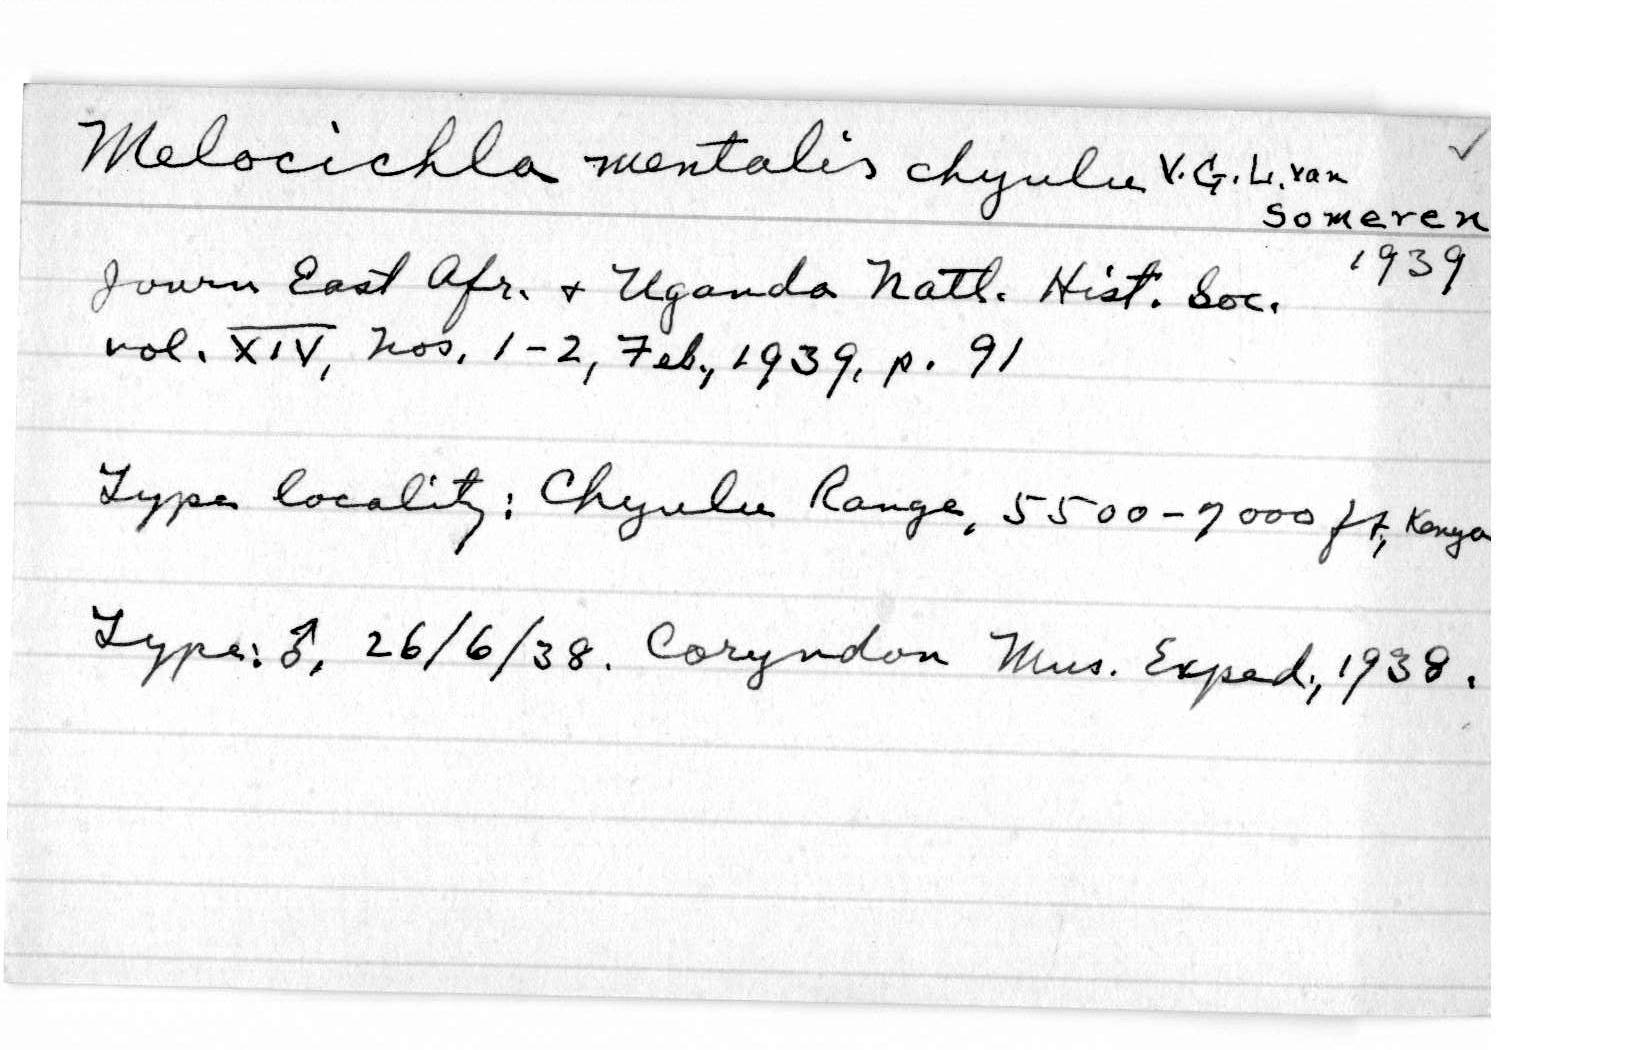 Melocichla mentalis chyulu V.G.L. van
Someren
1939
Journ East Afr. + Uganda Natl. Hist. Soc.
vol. XIV, Nos. 1-2, Feb., 1939, p. 91
Type locality: Chyulu Range, 5500-7000 ft, Kenya
Type: ♂, 26/6/38. Coryndon Mus. Exped., 1938.